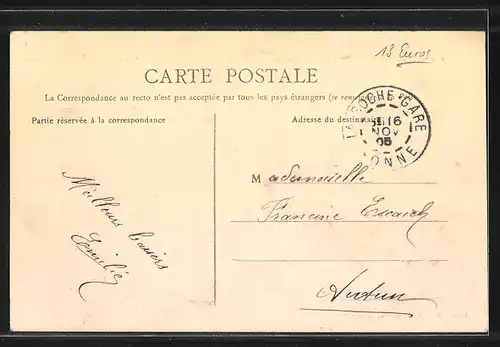 13 Euros
CARTE POSTALE
La Correspondance au recto n'est pas acceptée par tous les pays étrangers (se
Partie réservée à la correspondance
Adresse du destinataire
LAROCHE-GARE
16
NOV
05
YONNE
Mademoiselle
Francine
Autun
Meilleurs baisers
Emilie